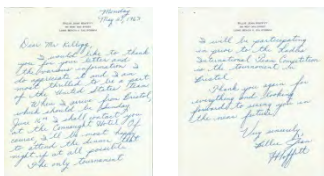 Monday
May 27, 1963
Dear Mr Kellogg,
I would like to thank
you for your letter and
the
appreciate it and I am
most thrilled to be a part
of the United States Team
When I arrive from Bristol,
which should be Sunday
June 9th I shall contact you
at the Connaught Hotel. Of
course, I'll be most happy
to attend the dinner that
night if at all possible.
The only tournament
I will be participating
in prior to the
International Team Competition
is the tournament in
Bristol
Thank you again for
everything and looking
forward to seeing you in
the near future.
Very sincerely,
Billie Jean
Moffitt